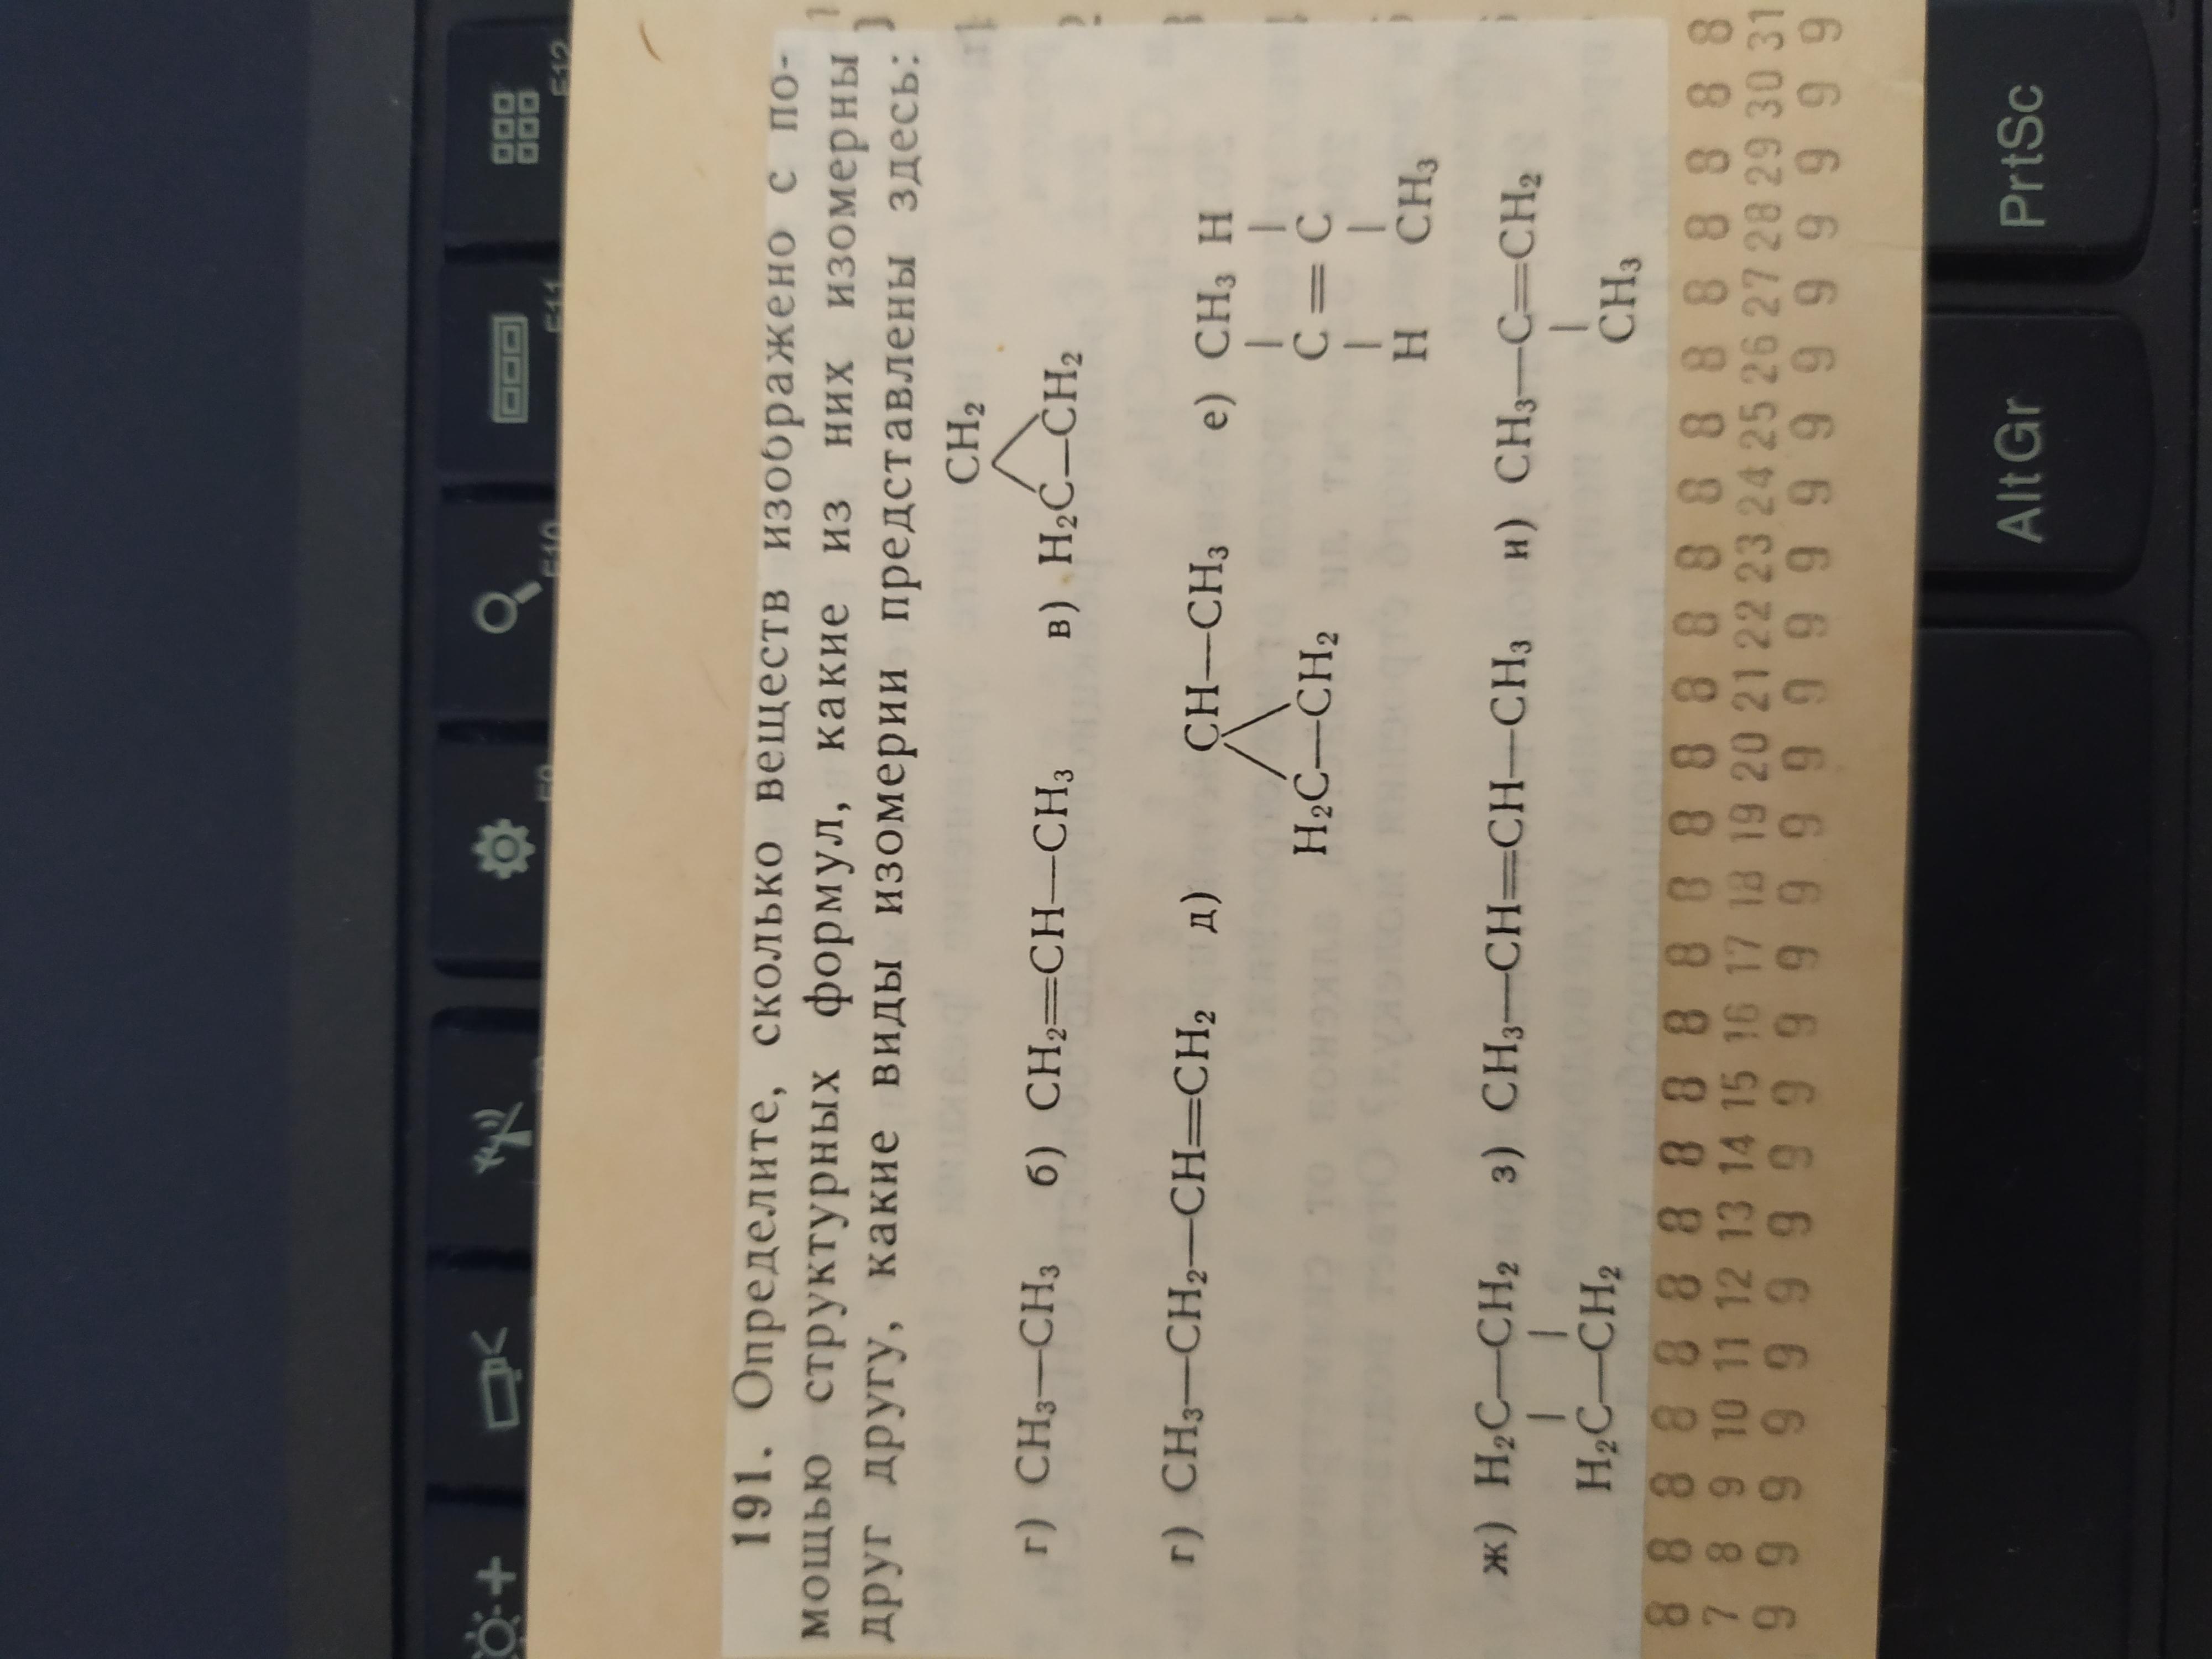 191. Определите, сколько веществ изображено с по-
мощью структурных формул, какие из них изомерны
друг другу, какие виды изомерии представлены здесь:
CH₂
г) CH₃—CH₃ б) CH₂=CH—CH₃ в) H₂C—CH₂
г) CH₃—CH₂—CH=CH₂ д) CH—CH₃ е) CH₃ H
H₂C—CH₂ C=C
H CH₃
ж) H₂C—CH₂ з) CH₃—CH=CH—CH₃ и) CH₃—C=CH₂
H₂C—CH₂ CH₃
8 8 8 8 8 8 8 8 8 8 8 8 8 8 8 8 8 8 8 8 8 8 8 8 8
7 8 9 10 11 12 13 14 15 16 17 18 19 20 21 22 23 24 25 26 27 28 29 30 31
9 9 9 9 9 9 9 9 9 9 9 9 9 9 9 9 9 9 9 9 9 9 9 9 9
F10
F11
F12
AltGr
PrtSc